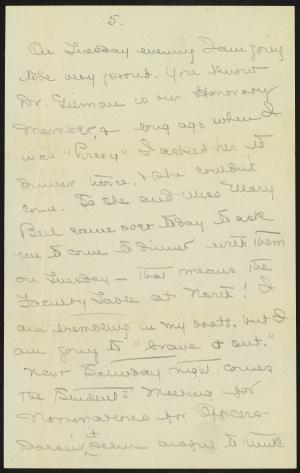 5.
On Tuesday evening I am going
to be very proud. You know
Dr. Gilman is our Honorary
Member, & long ago when I
was "Prexy" I asked her to
dinner twice, & she couldn't
come. So she and Miss Mary
Bell came over today to ask
me to come to dinner with them
on Tuesday – that means the
Faculty Table at North! I
am trembling in my boots, but I
am going to "brave it out."
Next Saturday night comes
the Students' Meeting for
Nominations for Officers–
Doesn't it seem awful to think